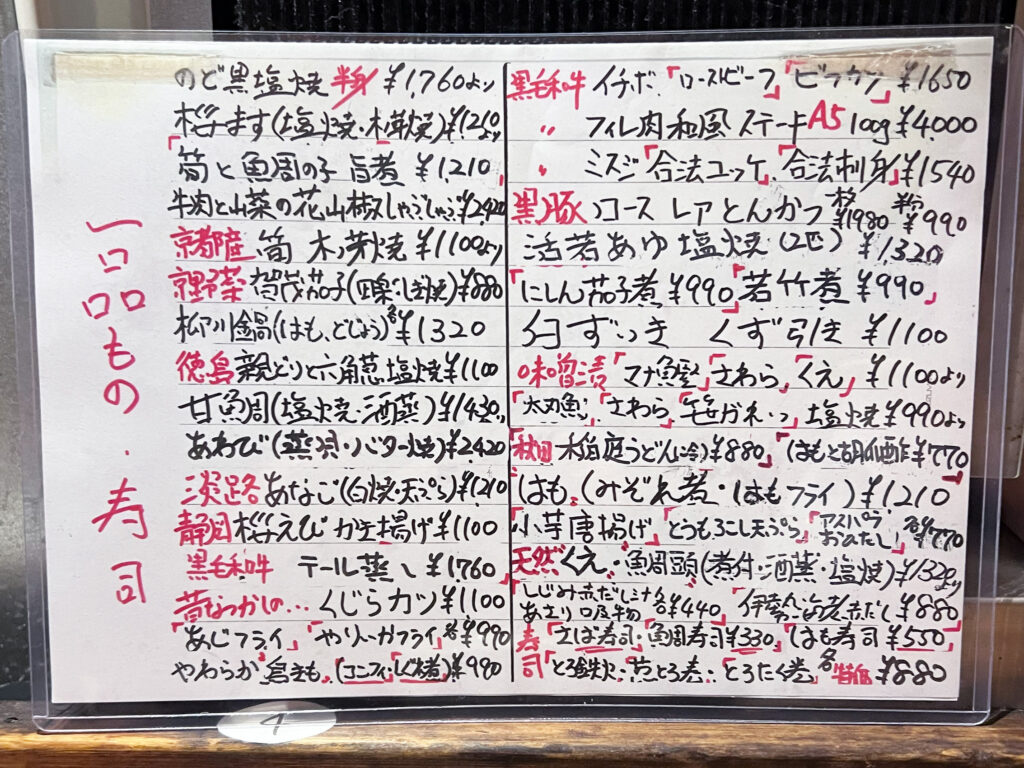 一品もの・寿司
のど黒塩焼 半身 ¥1,760より
桜ます(塩焼・木の芽焼)¥1210より
「筍と鯛の子 旨煮 ¥1,210
牛肉と山菜の花山椒しゃぶしゃぶ¥2420
京都産 筍 木ノ芽焼 ¥1100より
京野菜 賀茂茄子(田楽・しぎ焼)¥880
柳川鍋(はも、どじょう)各¥1320
徳島 親どりと六角葱塩焼¥1100
甘鯛(塩焼・酒蒸)¥1430より
あわび(蒸し・バター焼)¥2420
淡路 あなご(白焼・天ぷら)¥1210
静岡 桜えび かき揚げ¥1100
黒毛和牛 テール蒸し ¥1760
昔なつかしの… くじらカツ¥1100
「あじフライ」「やりいかフライ」各¥990
やわらか鳥きも。(コンフィ・しぐれ煮)¥990
黒毛和牛 イチボ、「ローストビーフ」「ビフカツ」¥1650
〃 フィレ肉和風ステーキ A5 100g ¥4000
〃 ミスジ「合法ユッケ」「合法刺身」¥1540
黒豚 ロース レアとんかつ 1枚¥1980 半分¥990
活若あゆ塩焼(2匹) ¥1,320
「にしん茄子煮¥990」「若竹煮¥990」
白ずいき くず引き ¥1100
味噌漬「マナ鰹」「さわら」「くえ」¥1100より
「太刀魚」「さわら」「笹がれい」塩焼¥990より
「秋田 稲庭うどん(冷)¥880」「はもと胡瓜酢¥770」
はも、(みぞれ煮・はもフライ)¥1210
「小芋唐揚げ」「とうもろこし天ぷら」「アスパラおひたし」各¥770
天然くえ。鯛頭(煮付・酒蒸・塩焼)¥1320より
「しじみ赤だし」「あさり吸物」各¥440 「伊勢海老赤だし¥880
寿司「さば寿司・鯛寿司¥330」「はも寿司¥550」
「とろ鉄火・葱とろ巻・とろたく巻 各 ¥880
4